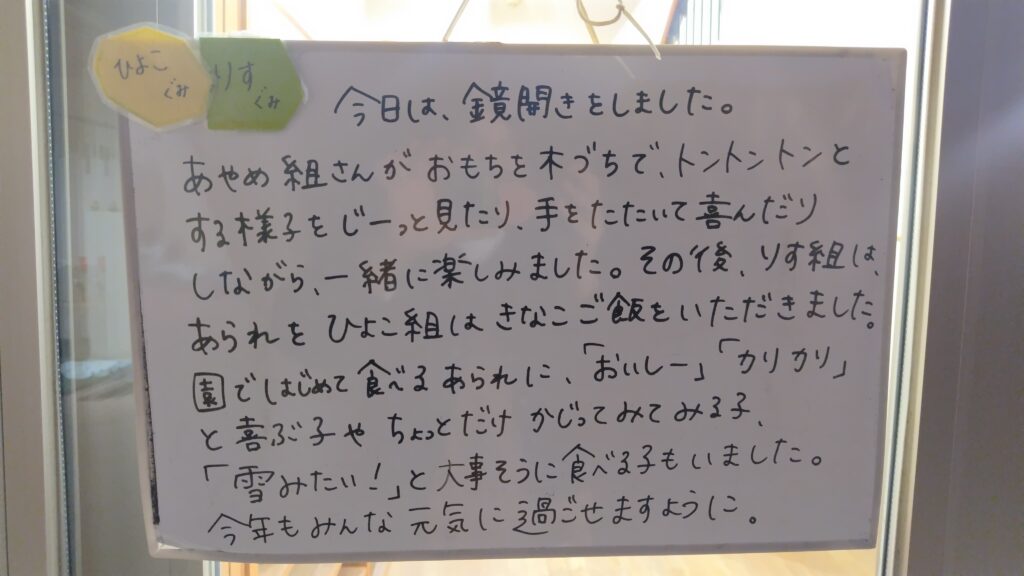 ひよこ
ぐみ
りす
ぐみ
今日は、鏡開きをしました。
あやめ組さんがおもちを木づちで、トントントンと
する様子をじーっと見たり、手をたたいて喜んだり
しながら、一緒に楽しみました。その後、りす組は、
あられを ひよこ組は きなこご飯をいただきました。
園ではじめて食べるあられに、「おいしー」「カリカリ」
と喜ぶ子や ちょっとだけ かじってみてみる子、
「雪みたい!」と大事そうに食べる子もいました。
今年もみんな元気に過ごせますように。